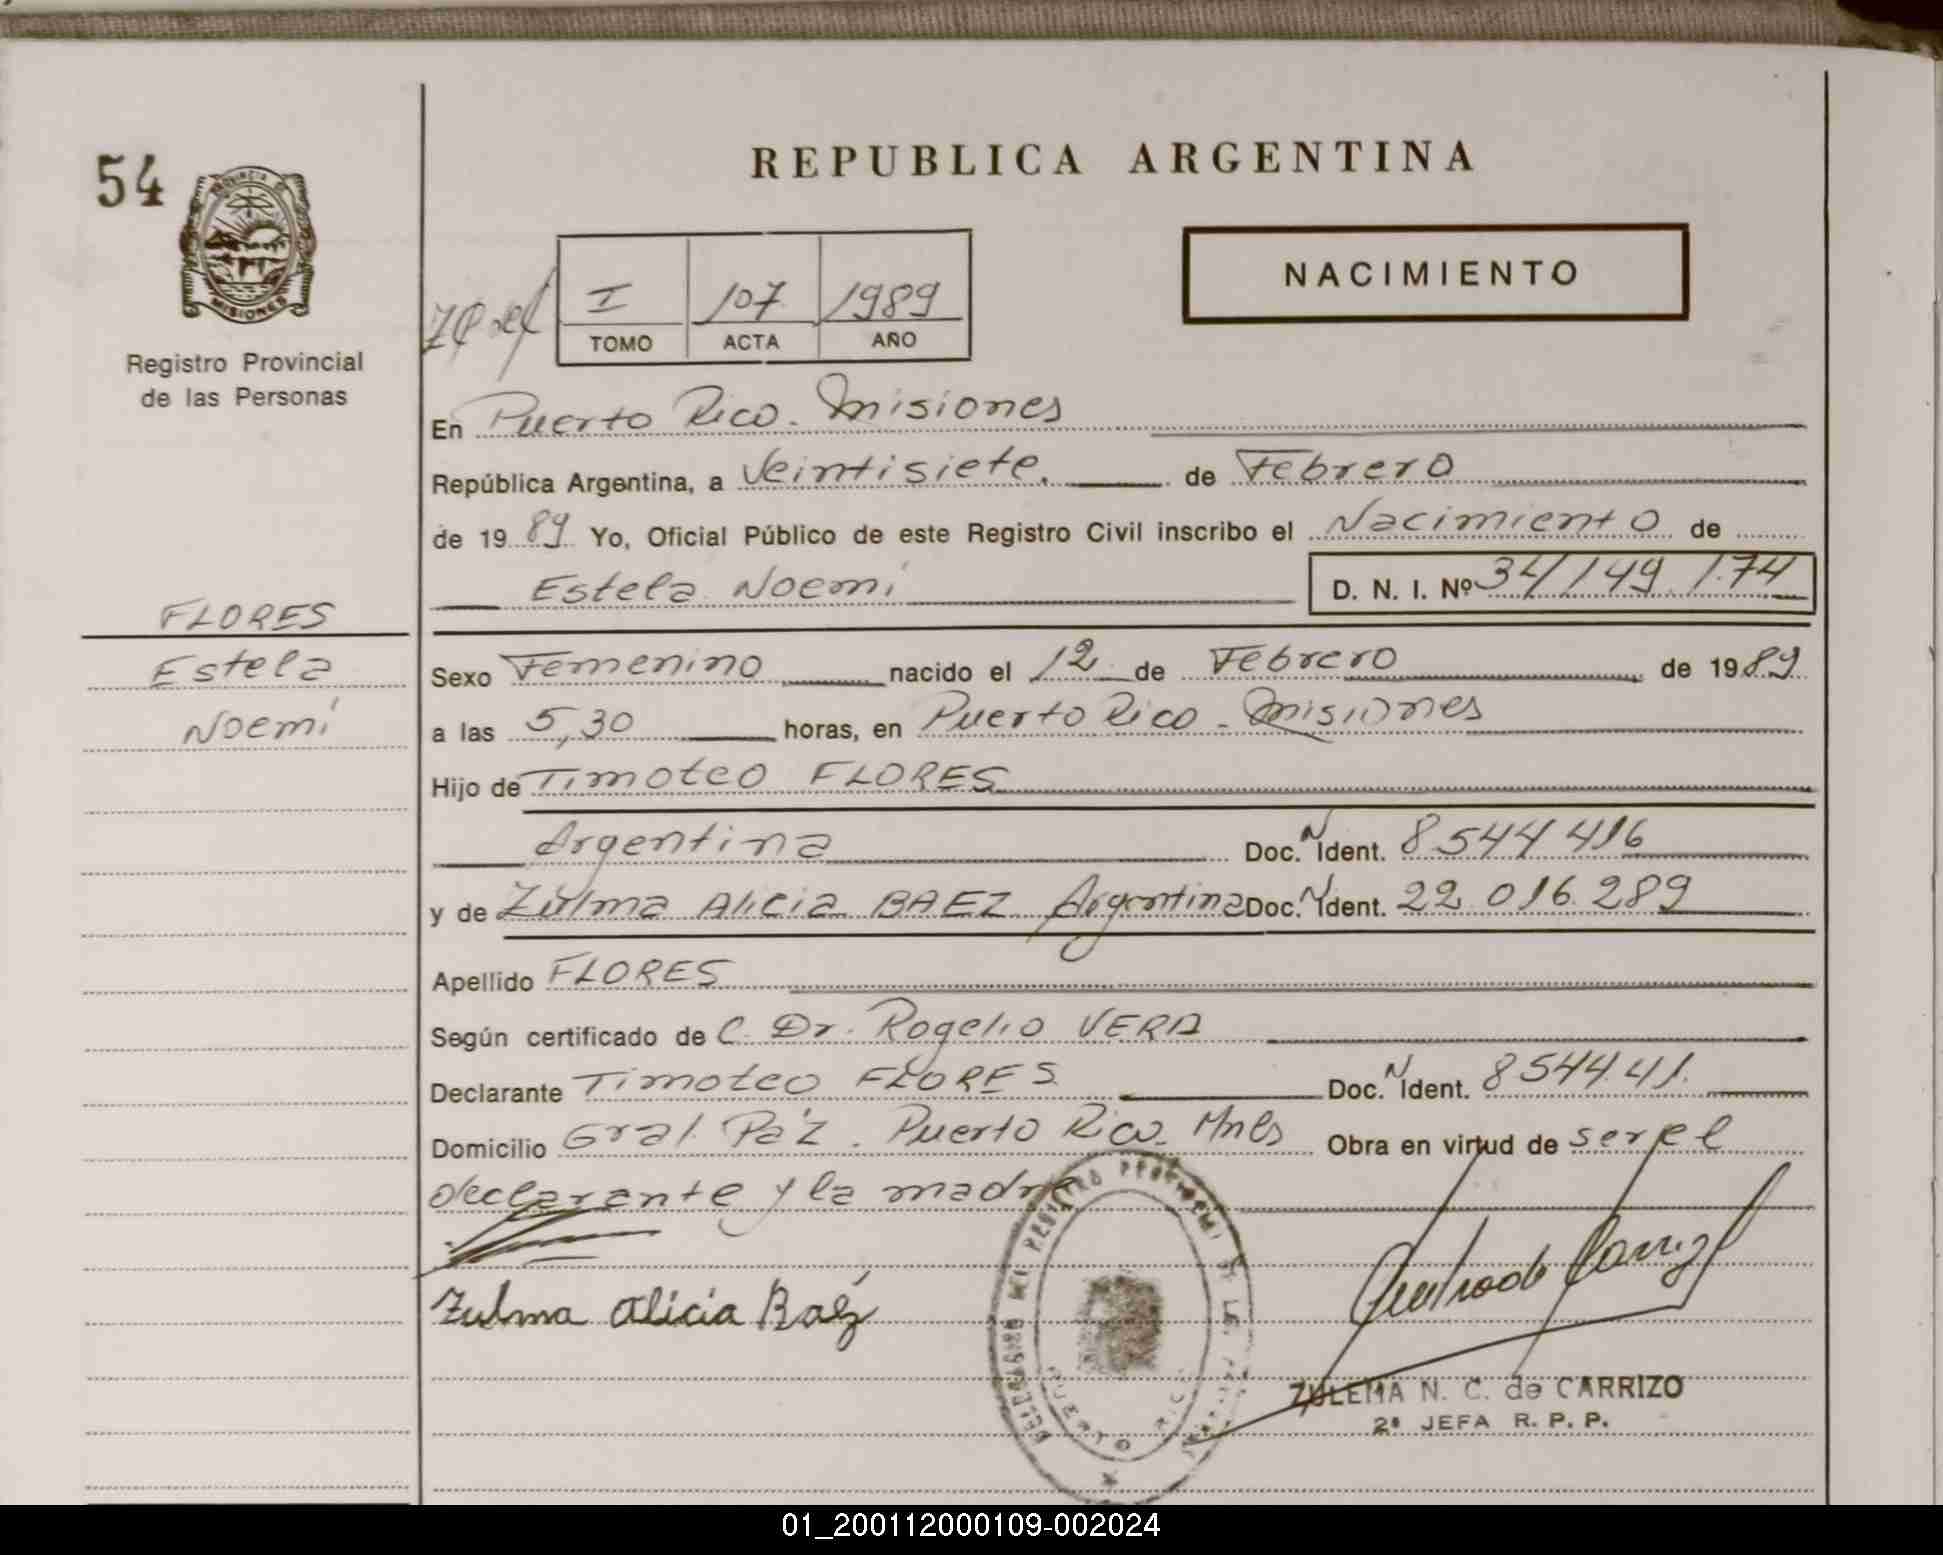 54
PROVINCIA DE
MISIONES
Registro Provincial
de las Personas
REPUBLICA ARGENTINA
NACIMIENTO
I 107 1989
TOMO ACTA AÑO
En Puerto Rico. Misiones
República Argentina, a Veintisiete. de Febrero
de 1989 Yo, Oficial Público de este Registro Civil inscribo el Nacimiento de
Estela Noemí D. N. I. Nº 34/149.174
FLORES
Estela
Noemí
Sexo Femenino nacido el 12 de Febrero de 1989
a las 5,30 horas, en Puerto Rico - Misiones
Hijo de Timoteo FLORES
Argentina Doc. N Ident. 8544416
y de Zulma Alicia BAEZ Argentina Doc. N Ident. 22.016.289
Apellido FLORES
Según certificado de C. Dr. Rogelio VERA
Declarante Timoteo FLORES Doc. N Ident. 8544.41.
Domicilio Gral. Páz. Puerto Rico - Mnes Obra en virtud de ser el
declarante y la madre
Zulma Alicia Baéz
PUERTO RICO
ZULEMA N. C. de CARRIZO
2ª JEFA R. P. P.
01_200112000109-002024